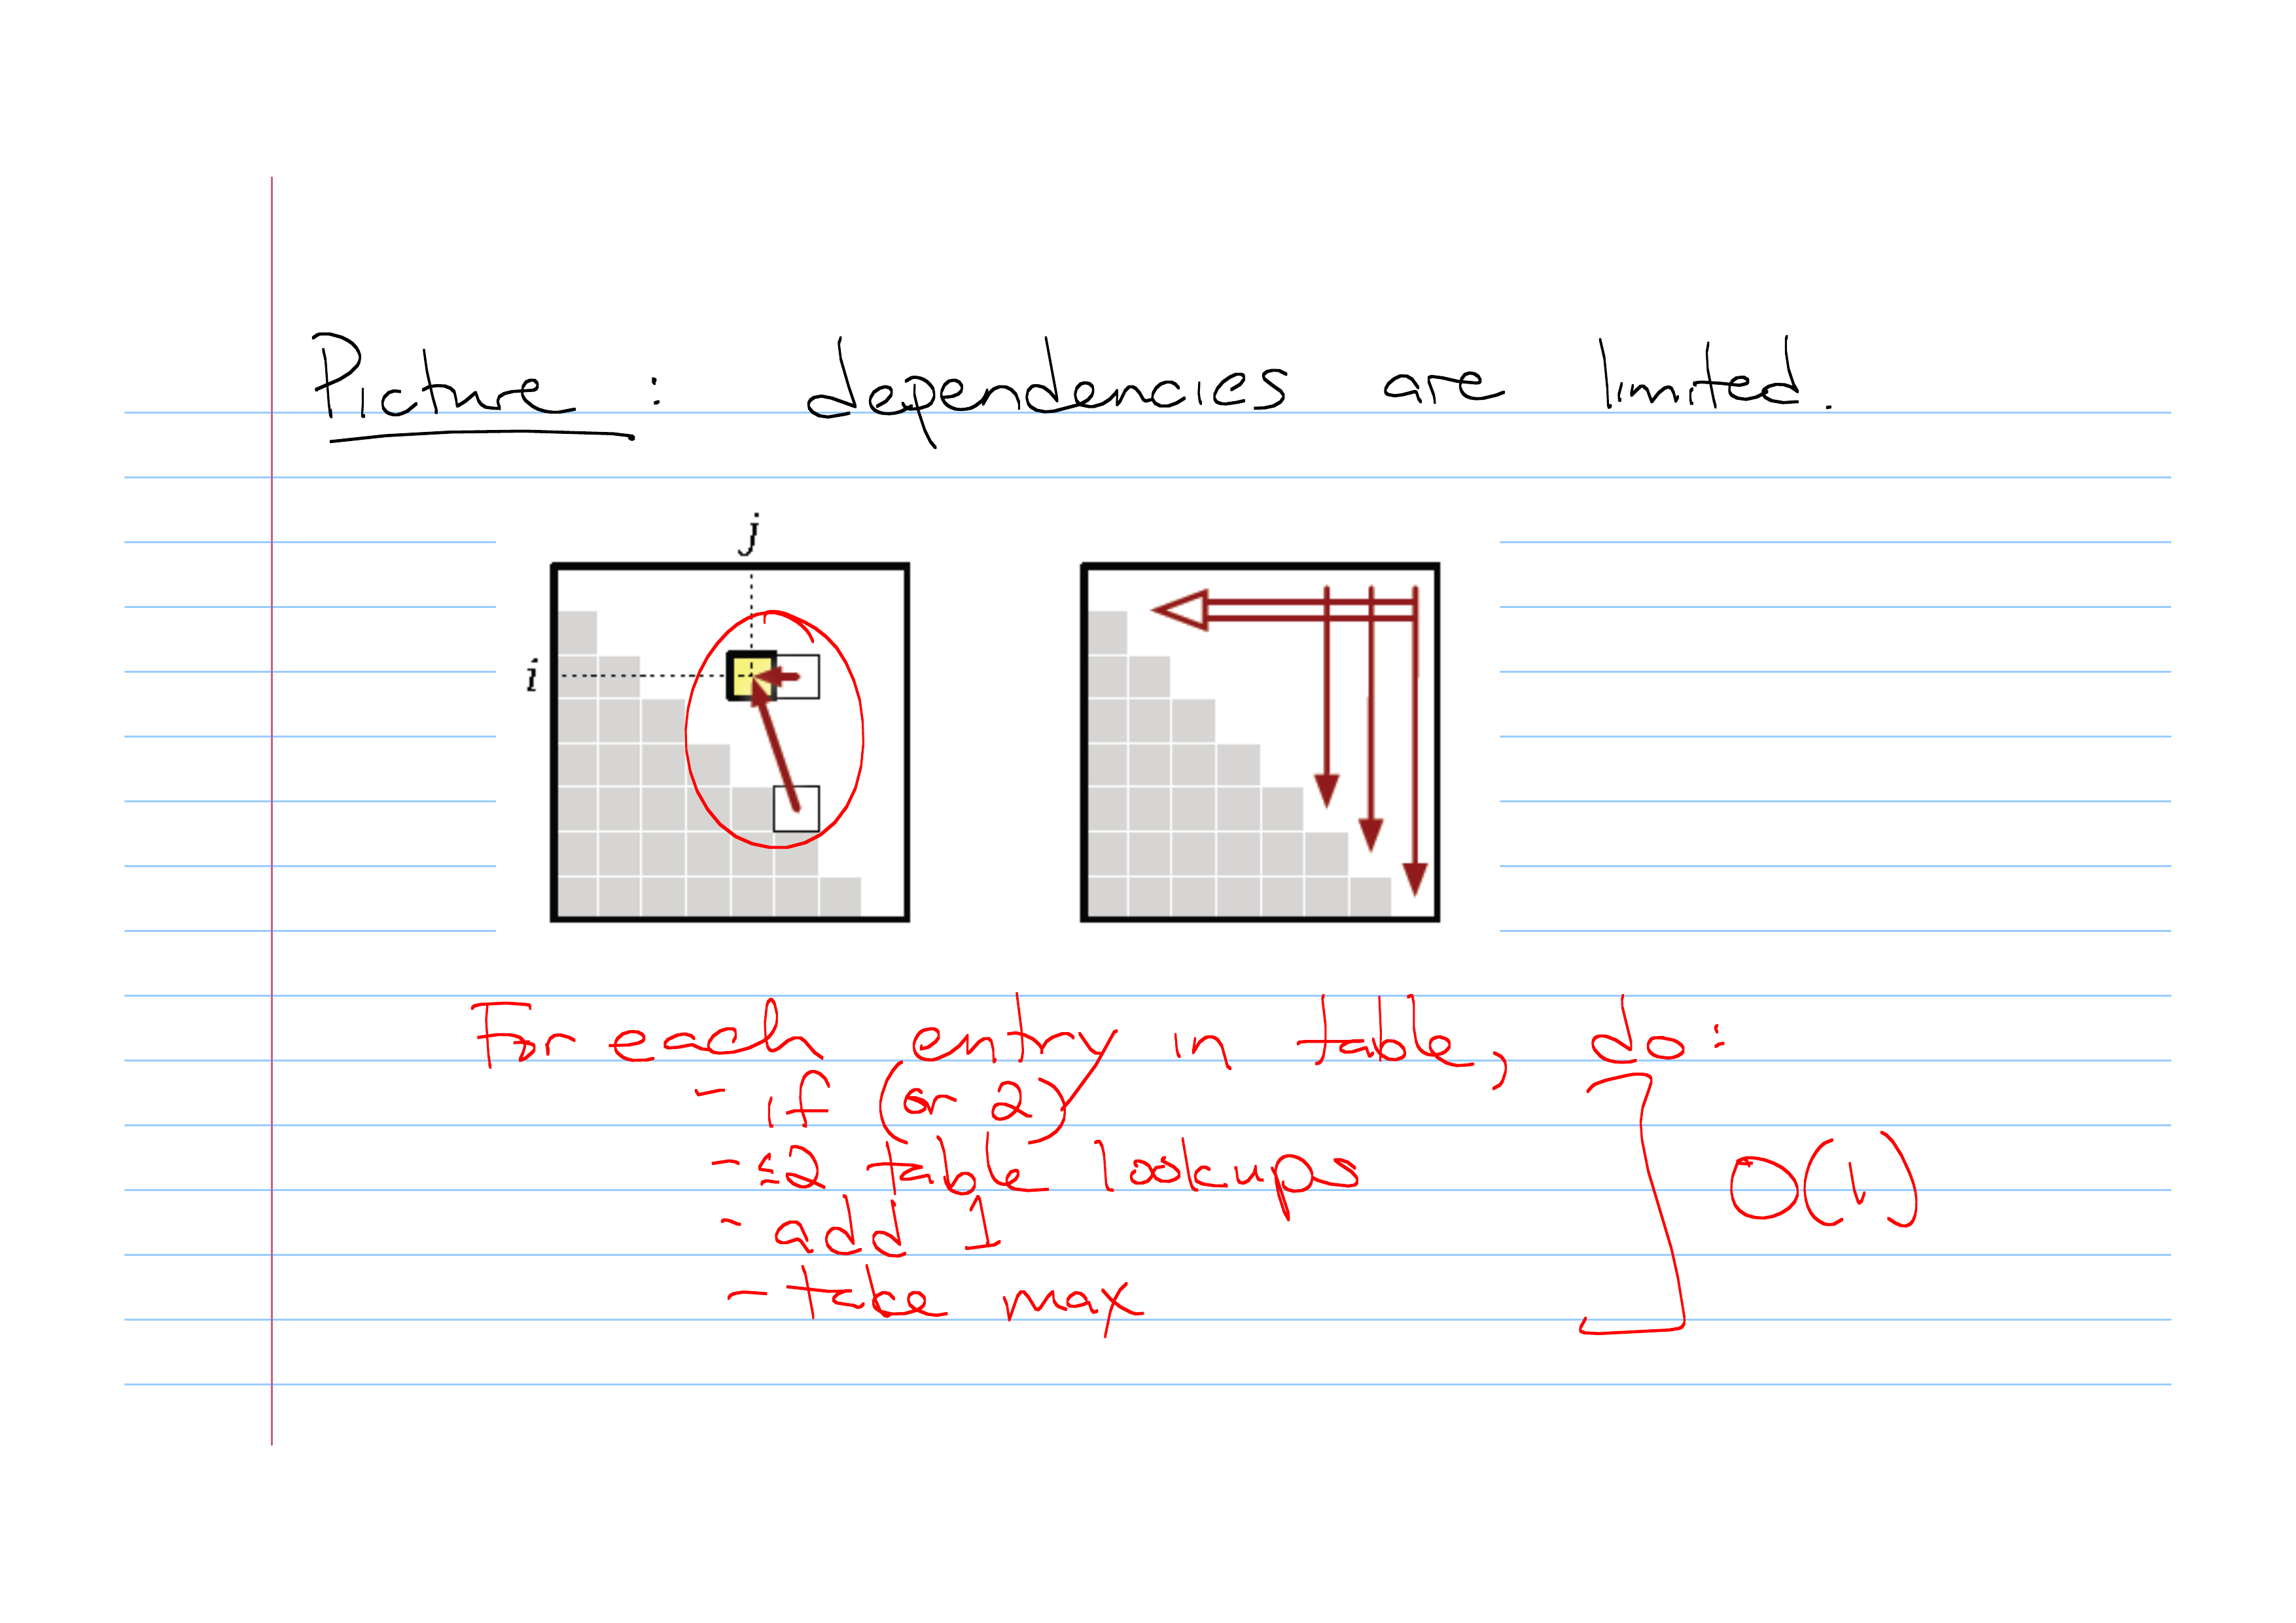 Picture : dependencies are limited.
j
i
For each entry in table, do:
- if (or 2)
- ≤2 table lookups
- add 1
- take max
O(1)